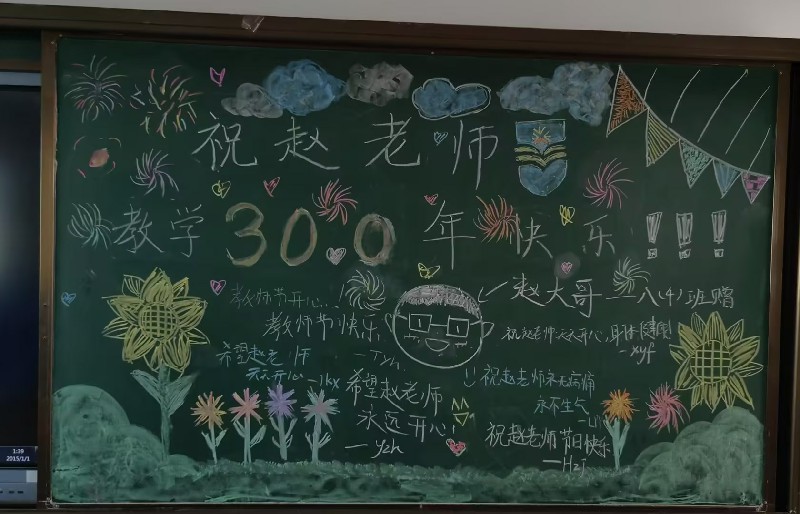 祝赵老师
教学300年快乐!!!
教师节开心..!
教师节快乐
-Txh.
赵大哥——八(4)班赠
祝赵老师天天开心,身体健康
-xyf
希望赵老师
天天开心-lkx
希望赵老师
永远开心!
-yzh
祝赵老师永无病痛
永不生气
祝赵老师节日快乐
-Hzj
1:39
2015/1/1